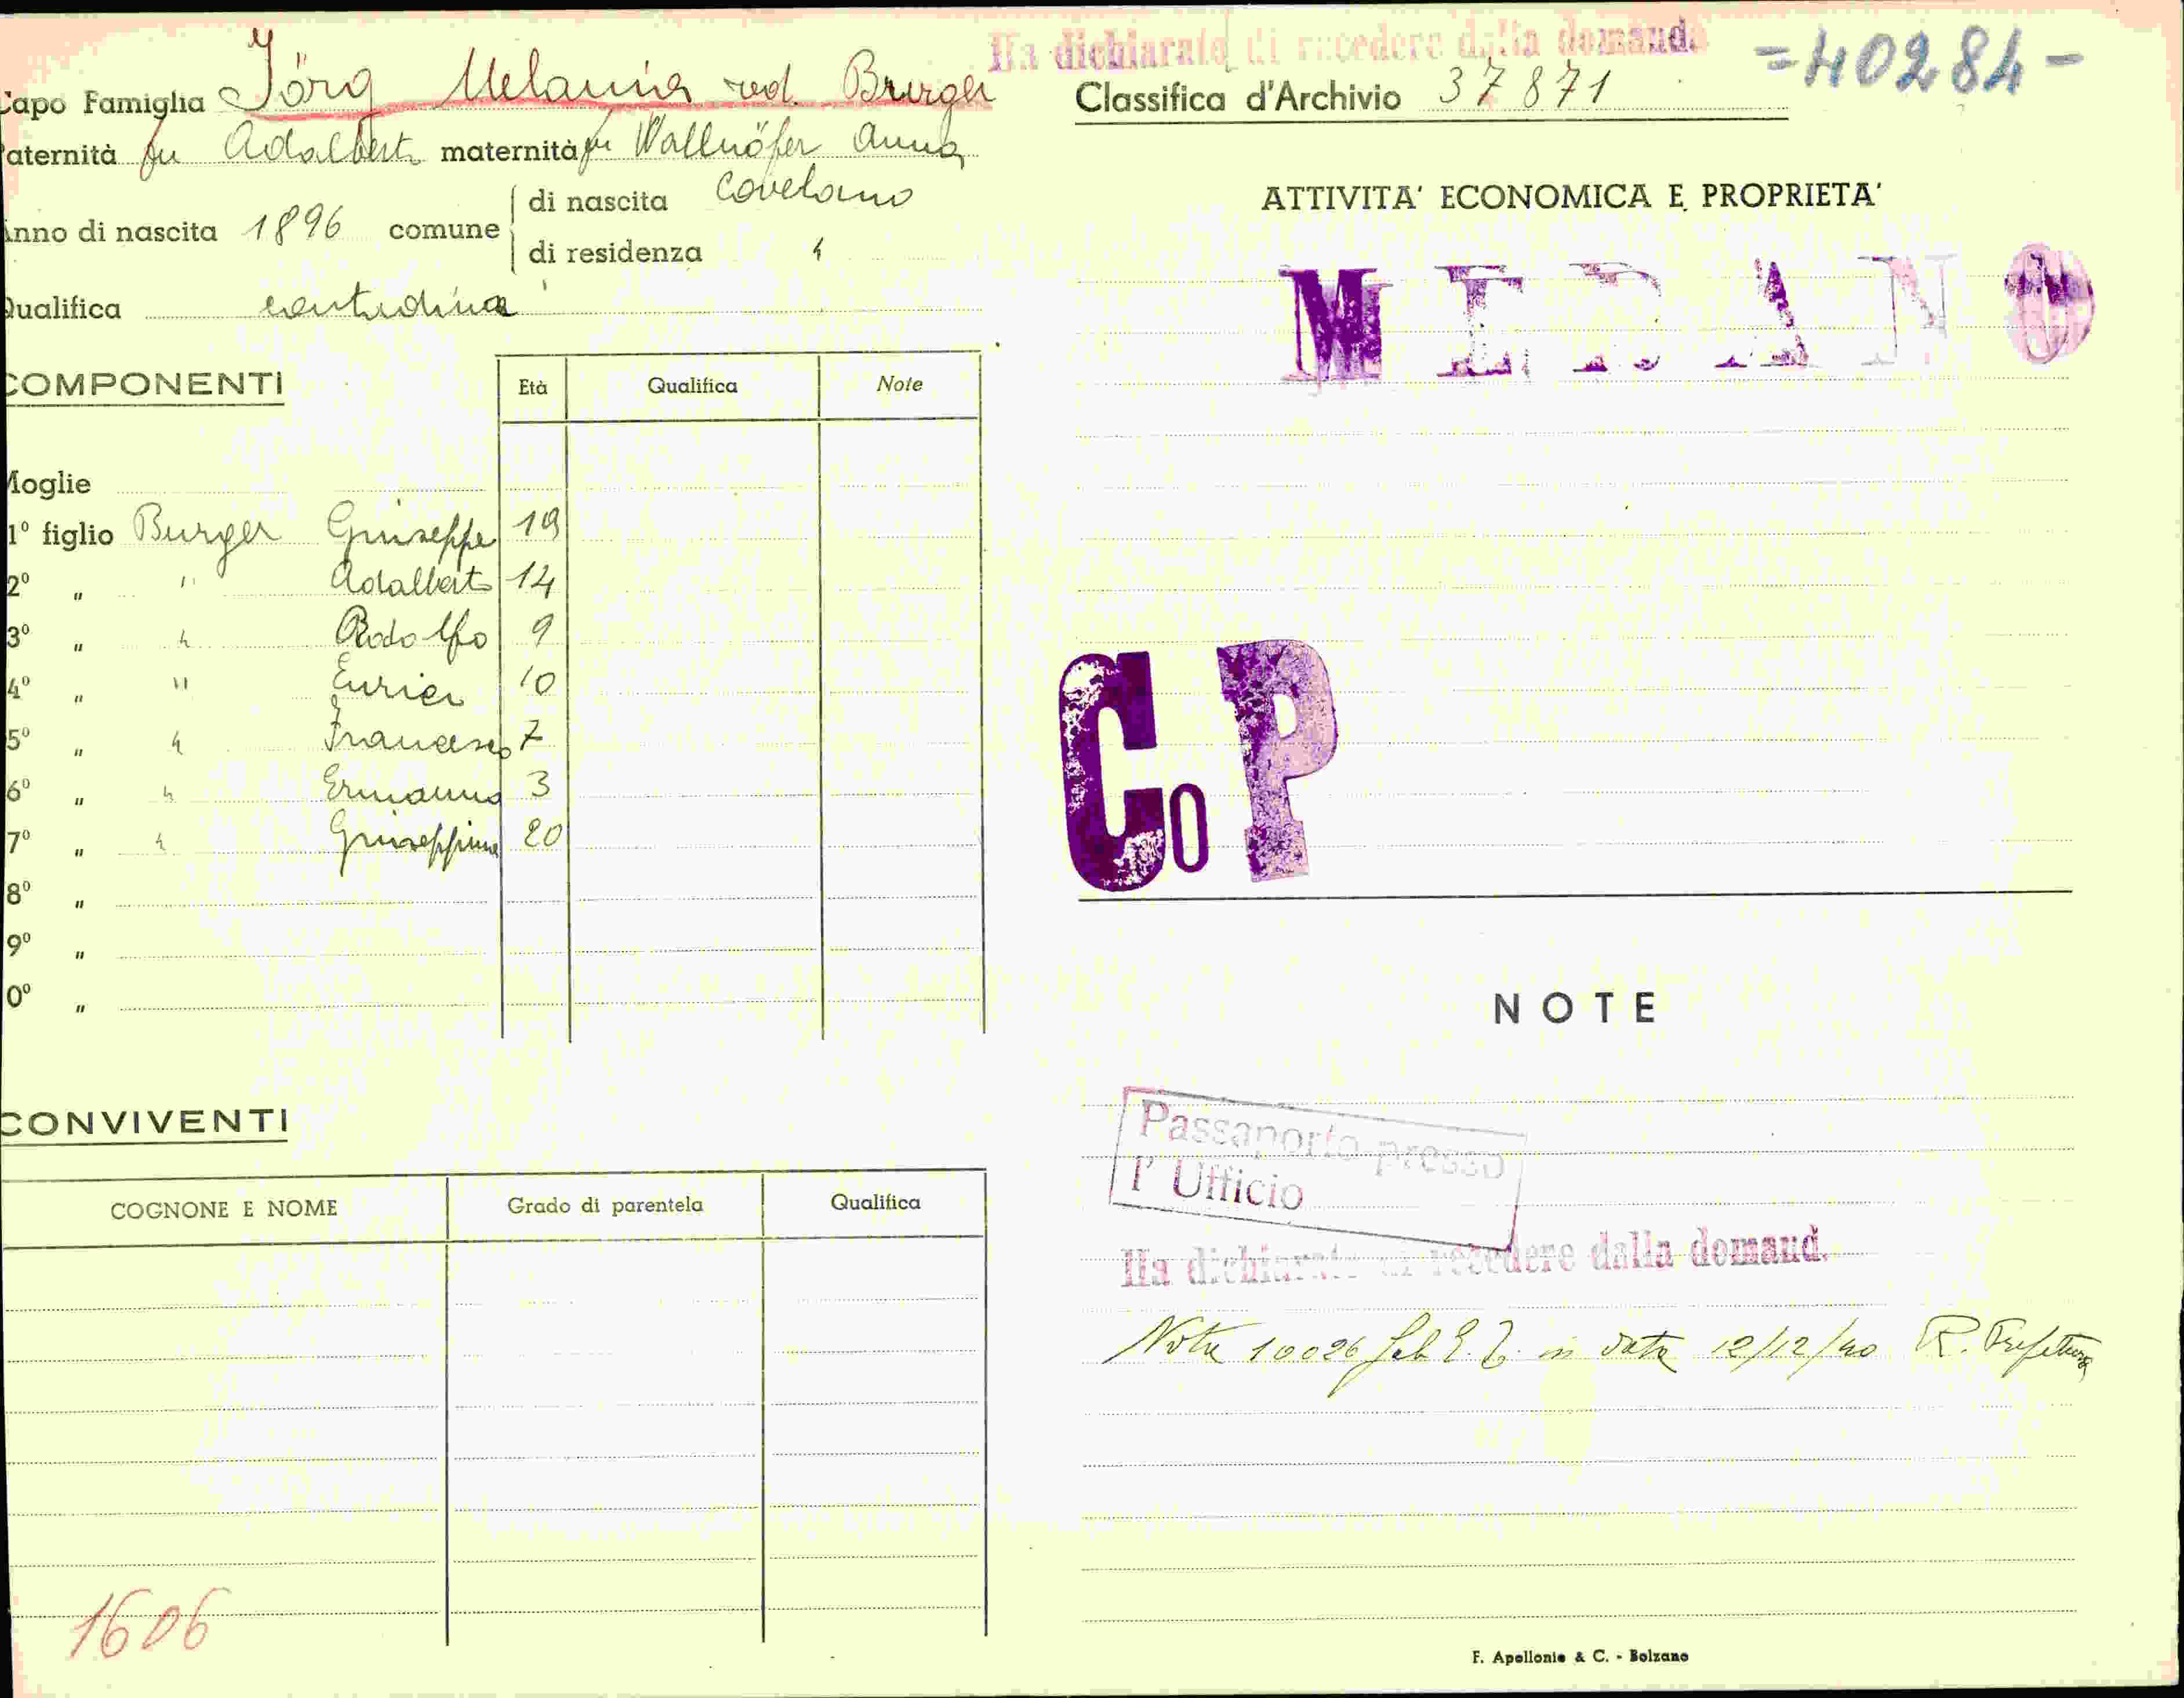 Capo Famiglia Jörg Melania ved. Burger
Paternità fu Adalberto maternità fu Wallnöfer Anna
Anno di nascita 1896 comune di nascita Covelano
di residenza "
Qualifica contadina
COMPONENTI Età Qualifica Note
Moglie
1º figlio Burger Giuseppe 19
2º " " Adalberto 14
3º " " Rodolfo 9
4º " " Enrica 10
5º " " Francesco 7
6º " " Ermanno 3
7º " " Giuseppina 20
8º "
9º "
0º "
CONVIVENTI
COGNONE E NOME Grado di parentela Qualifica
1606
Ha dichiarato di recedere dalla domand.
=40284-
Classifica d'Archivio 37871
ATTIVITA' ECONOMICA E PROPRIETA'
MERANO
Co P
NOTE
Passaporto presso
l' Ufficio
Ha dichiarato di recedere dalla domand.
Nota 10026 Gab in data 12/12/40 R. Prefettura
F. Apollonio & C. - Bolzano